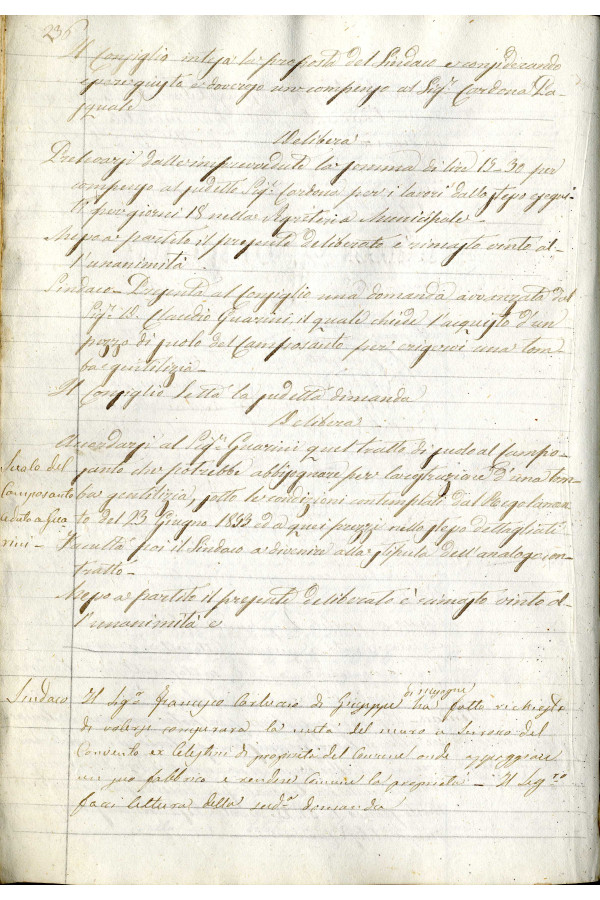 236
Il Consiglio intesa la proposta del Sindaco e considerando
essere giusto e doveroso un compenso al Sigr. Cardona Pa-
squale
Delibera
Prelevarsi dalle imprevedute la somma di lire 15-30 per
compenso al sudetto Sigr. Cardona per i lavori dallo stesso esegui-
ti per giorni 18 nella Segreteria Municipale.
Messo a partito il presente deliberato è rimasto vinto al-
l'unanimità
Sindaco - Presenta al Consiglio una domanda avvanzata dal
Sigr. D. Claudio Guarini il quale chiede l'acquisto d'un
pezzo di suolo del Camposanto per erigervi una tom-
ba gentilizia -
Il Consiglio letta la sudetta dimanda
Delibera
Accordarsi al Sigr. Guarini quel tratto di suolo al Campo-
santo che potrebbe abbisognare per la costruzione d'una tom-
ba gentilizia, sotto le condizioni contemplate dal Regolamen-
to del 23 Giugno 1853 ed a quei prezzi nello stesso dettagliati
Facultà poi il Sindaco a divenire alla stipula dell'analogo con-
tratto -
Messo a partito il presente deliberato è rimasto vinto al-
l'unanimità e
Suolo del
Camposanto
ceduto a Gua
rini -
Sindaco Il Sigro. Francesco Carluccio di Giuseppe ha fatto richiesta
di volersi comperare la metà del muro a del
Convento ex Celestini di proprietà del Comune onde appoggiare
un suo fabbrico e rendere comune la proprietà - Il Segro.
facci lettura della suda. domanda